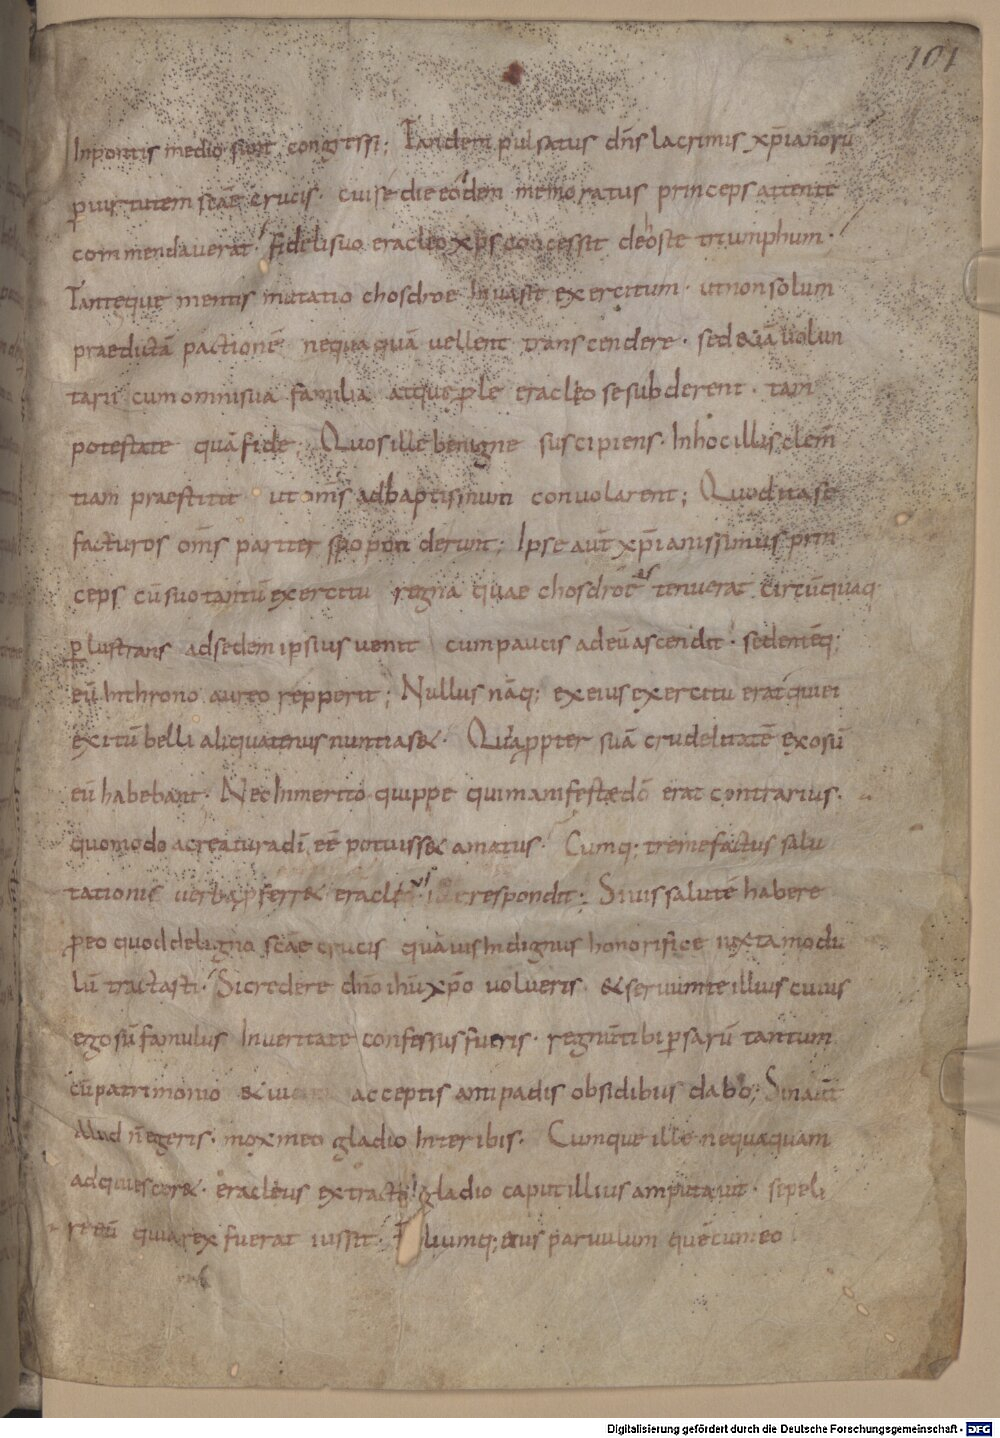 101
Inpontis medio sunt congressi; Tandem pulsatus dn̄s lacrimis xp̄ianorū
ꝑ uirtutem sc̄ae crucis · cui se die eodem memoratus princeps attente
commendauerat · fideli suo eracleo xp̄s concessit de hoste triumphum ·
Tanteque mentis mutatio chosdroe Inuasit exercitum · ut non solum
praedictā pactionē nequaquā uellent transcendere · sed & iā uolun
tarii cum omni sua familia atque ꝓle eracleo se subderent · tam
potestate quā fide; Quos ille benigne suscipiens · In hoc illis clem̄
tiam praestitit ut om̄s ad baptismum conuolarent; Quod ita se
facturos om̄s pariter spoponderunt; Ipse aut̄ xp̄ianissimus prin
ceps cū suo tantū exercitu regna quae chosdroe tenuerat circūquaq
ꝑlustrans ad sedem ipsius uenit cum paucis ad eū ascendit · sedemēq;
eū In throno aureo repperit; Nullus nāq; ex eius exercitu erat qui ei
exitū belli aliquatenus nuntias&· Quia ꝓpter suā crudelitatē exosū
eū habebant · Nec Inmerito quippe qui manifestae dō erat contrarius ·
quomodo a creatura dī eē potuiss& amatus · Cumq; tremefactus salu
tationis uerba ꝓferr& eracleus respondit; Si uis salutē habere
ꝓ eo quod de ligno sc̄ae crucis quāuis Indignus honorifice iuxta modu
lū tractasti · Si credere dn̄o ihū xp̄o uolueris · & seruum te illius cuius
ego sū famulus In ueritate confessus fueris · regnū tibi ꝑsarū tantum
cū patrimonio & acceptis a me padis obsidibus dabo; Sin aut̄
aliud n̄ egeris · mox meo gladio Interibis · Cumque ille nequaquam
adquiescer& · eracleus extracto gladio caput illius amputauit · sepeli
ri eū quia rex fuerat iussit · Filiumq; eius paruulum quē cum eo
Digitalisierung gefördert durch die Deutsche Forschungsgemeinschaft - DFG